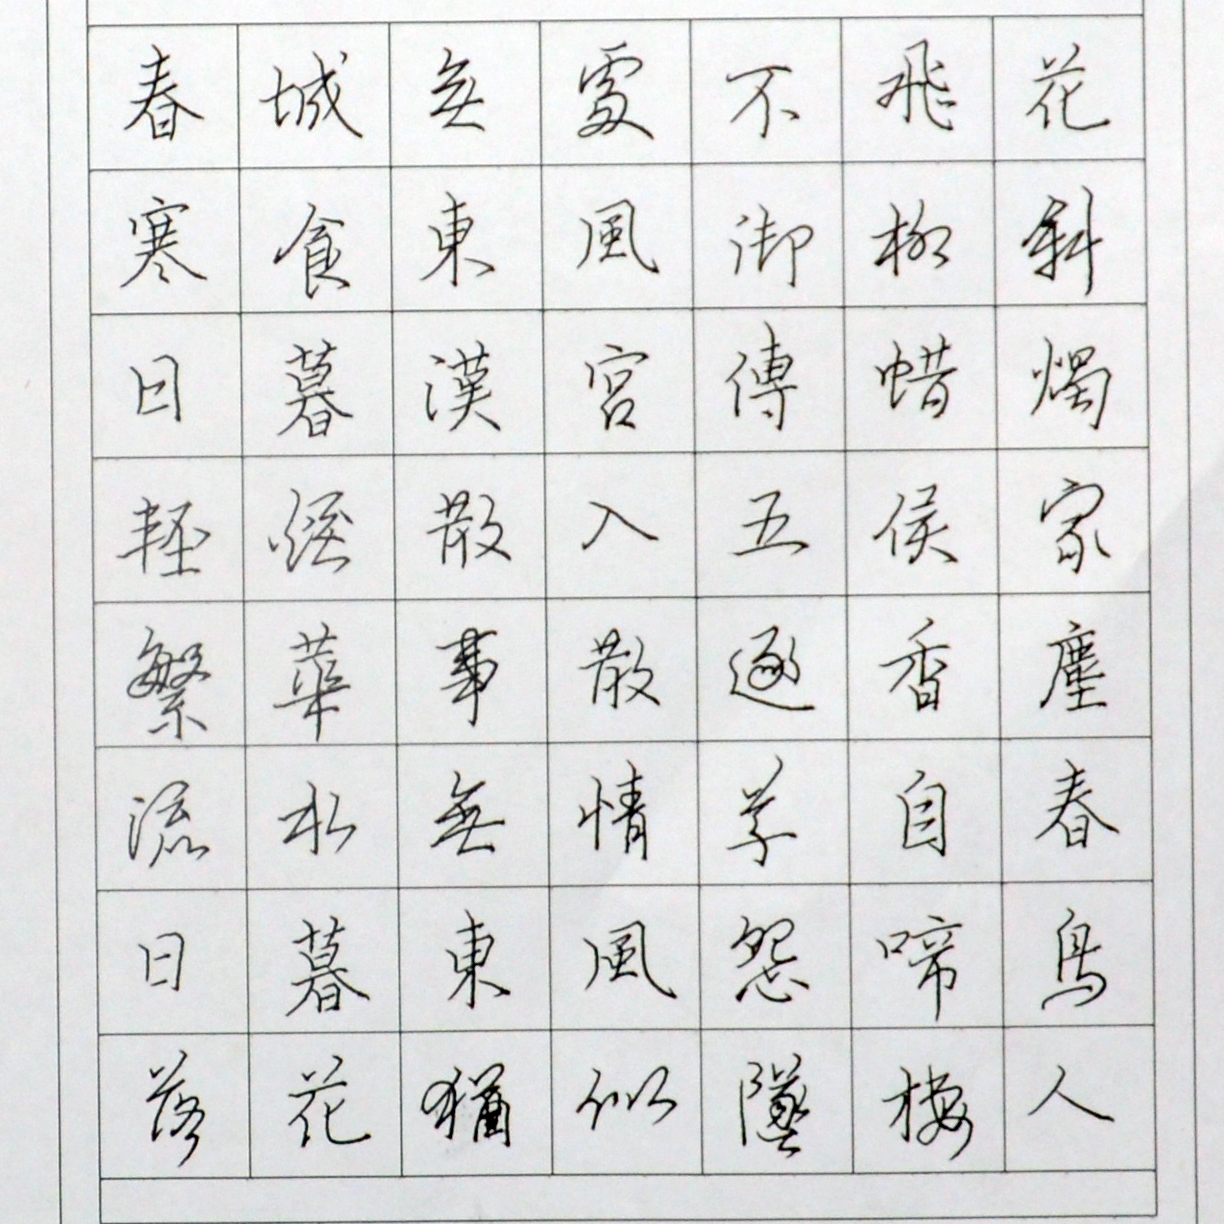 春城無處不飛花
寒食東風御柳斜
日暮漢宮傳蜡燭
輕煙散入五侯家
繁華事散逐香塵
流水無情草自春
日暮東風怨啼鳥
落花猶似墜樓人